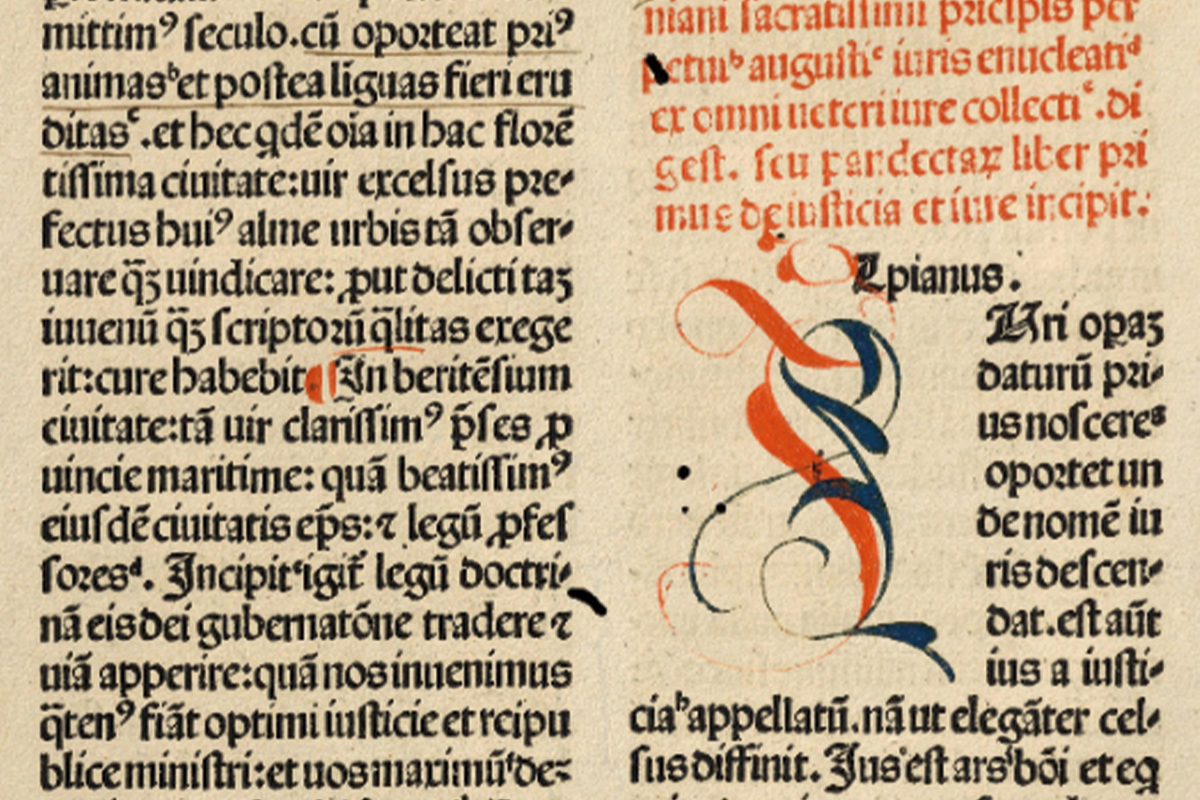 mittimꝰ ſeculo.cū oporteat priꝰ
animasᵇet poſtea līguas fieri eru
ditasᶜ.et hec qdē oīa in hac florē
tiſſima ciuitate:uir excelſus pre⸗
fectus huiꝰ alme urbis tā obſer⸗
uare q̄ꝫ uindicare: ꝓut delicti taꝫ
iuuenū q̄ꝫ ſcriptorū q̄litas exege
rit:cure habebit. In beritēſium
ciuitate:tā uir clariſſimꝰ p̄ſes ꝓ
uincie maritime: quā beatiſſimꝰ
eiuſdē ciuitatis ep̄s:⁊ legū ꝓfeſ
ſoresᵈ. Incipitᵉigit̄ legū doctri⸗
nā eis dei gubernatōne tradere ⁊
uiā apperire:quā nos inuenimus
q̄tenꝰ fiāt optimi iuſticie et reipu
blice miniſtri:et uos maximūᶠde⸗
niani ſacratiſſimi pricipis per
petuiᵇ auguſtiᶜ iuris enucleatiᵈ
ex omni ueteri iure collectiᵉ.di
geſt. ſeu pandectaꝝ liber pri
mus de iuſticia et iure incipit.
Ulpianus.
Iuri opaꝫ
daturū pri⸗
us noſcereᵍ
oportet un
de nomē iu
ris deſcen⸗
dat.eſt aūt
ius a iuſti⸗
ciaʰappellatū.nā ut elegāter cel⸗
ſus diffinit. Jus eſt arsⁱbōi et eq